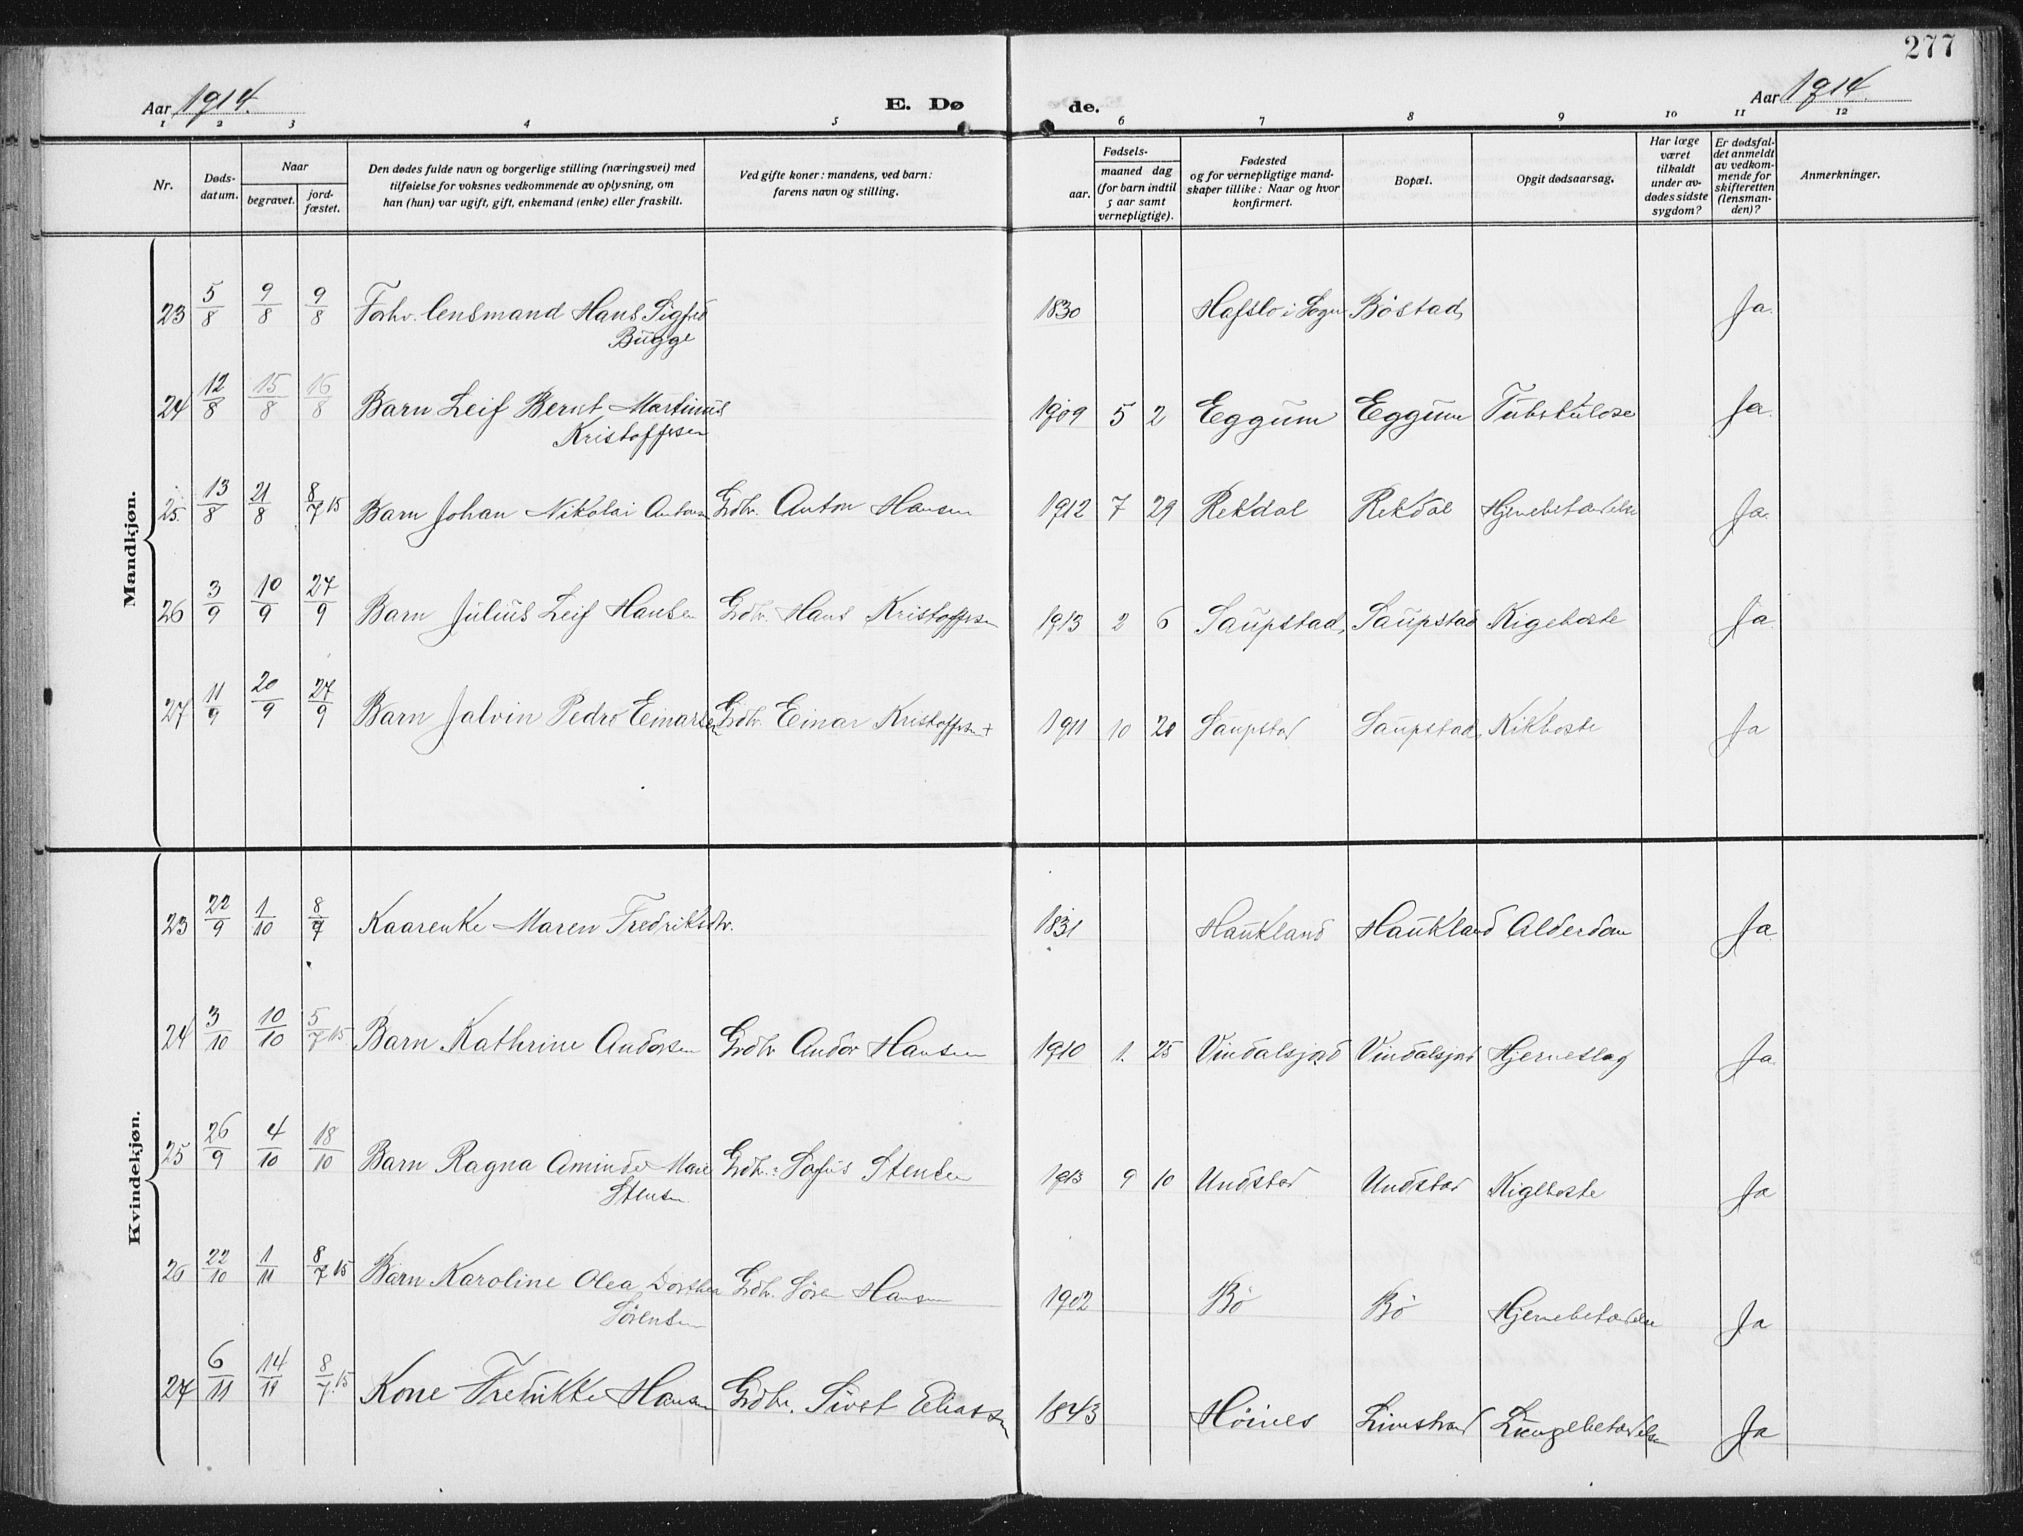 277
Aar 1914.
E. Døde.
Aar 1914.
1 2 3 4 5 6 7 8 9 10 11 12
Nr.
Døds-
datum.
Naar
begravet.
jord-
fæstet.
Den dødes fulde navn og borgerlige stilling (næringsvei) med
tilføielse for voksnes vedkommende av oplysning, om
han (hun) var ugift, gift, enkemand (enke) eller fraskilt.
Ved gifte koner: mandens, ved barn:
farens navn og stilling.
Fødsels-
aar.
maaned dag
(for barn indtil
5 aar samt
vernepligtige).
Fødested
og for vernepligtige mand-
skaper tillike: Naar og hvor
konfirmert.
Bopæl.
Opgit dødsaarsag.
Har læge
været
tilkaldt
under av-
dødes sidste
sygdom?
Er dødsfal-
det anmeldt
av vedkom-
mende for
skifteretten
(lensman-
den)?
Anmerkninger.
Mandkjøn.
23 5/8 9/8 9/8 Forhv. lensmand Hans Sigfrid 1830 Hafslo i Sogn Bøstad Ja.
Bugge
24 12/8 15/8 16/8 Barn Leif Bernt Martinus 1909 5 2 Eggum Eggum Tuberkulose Ja.
Kristoffersen
25. 13/8 21/8 8/7 15 Barn Johan Nikolai Antonsen Grdbr. Anton Hansen 1912 7 29 Rekdal Rekdal Hjernebetændelse Ja.
26 3/9 10/9 27/9 Barn Julius Leif Hansen Grdbr. Hans Kristoffersen 1913 2 6 Saupstad, Saupstad Kigehoste Ja.
27 11/9 20/9 27/9 Barn Jalvin Pedro Einarsen Grdbr. Einar Kristoffersen + 1911 10 20 Saupstad Saupstad, Kikhoste Ja
Kvindekjøn.
23 22/9 1/10 8/7 Kaarenke Maren Fredriksdtr. 1831 Haukland Haukland Alderdom Ja.
24 3/10 10/10 5/7 15 Barn Kathrine Andorsen Grdbr Andor Hansen 1910 1. 25 Vindalsjord Vindalsjord Hjerneslag Ja.
25 26/9 4/10 18/10 Barn Ragna Aminda Marie Grdbr.: Sofus Stensen 1913 9 10 Undstad Undstad Kigehoste Ja
Stensen
26 22/10 1/11 8/7 15 Barn Karoline Olea Dorthea Grdbr. Sören Hansen 1902 Bö Bö Hjernebetændelse Ja
Sörensen
27 6/11 14/11 8/7.15 Kone Fredrikke Hansen Grdbr. Sivert Eliassen 1843 Höines Limstrand Lungebetændelse Ja